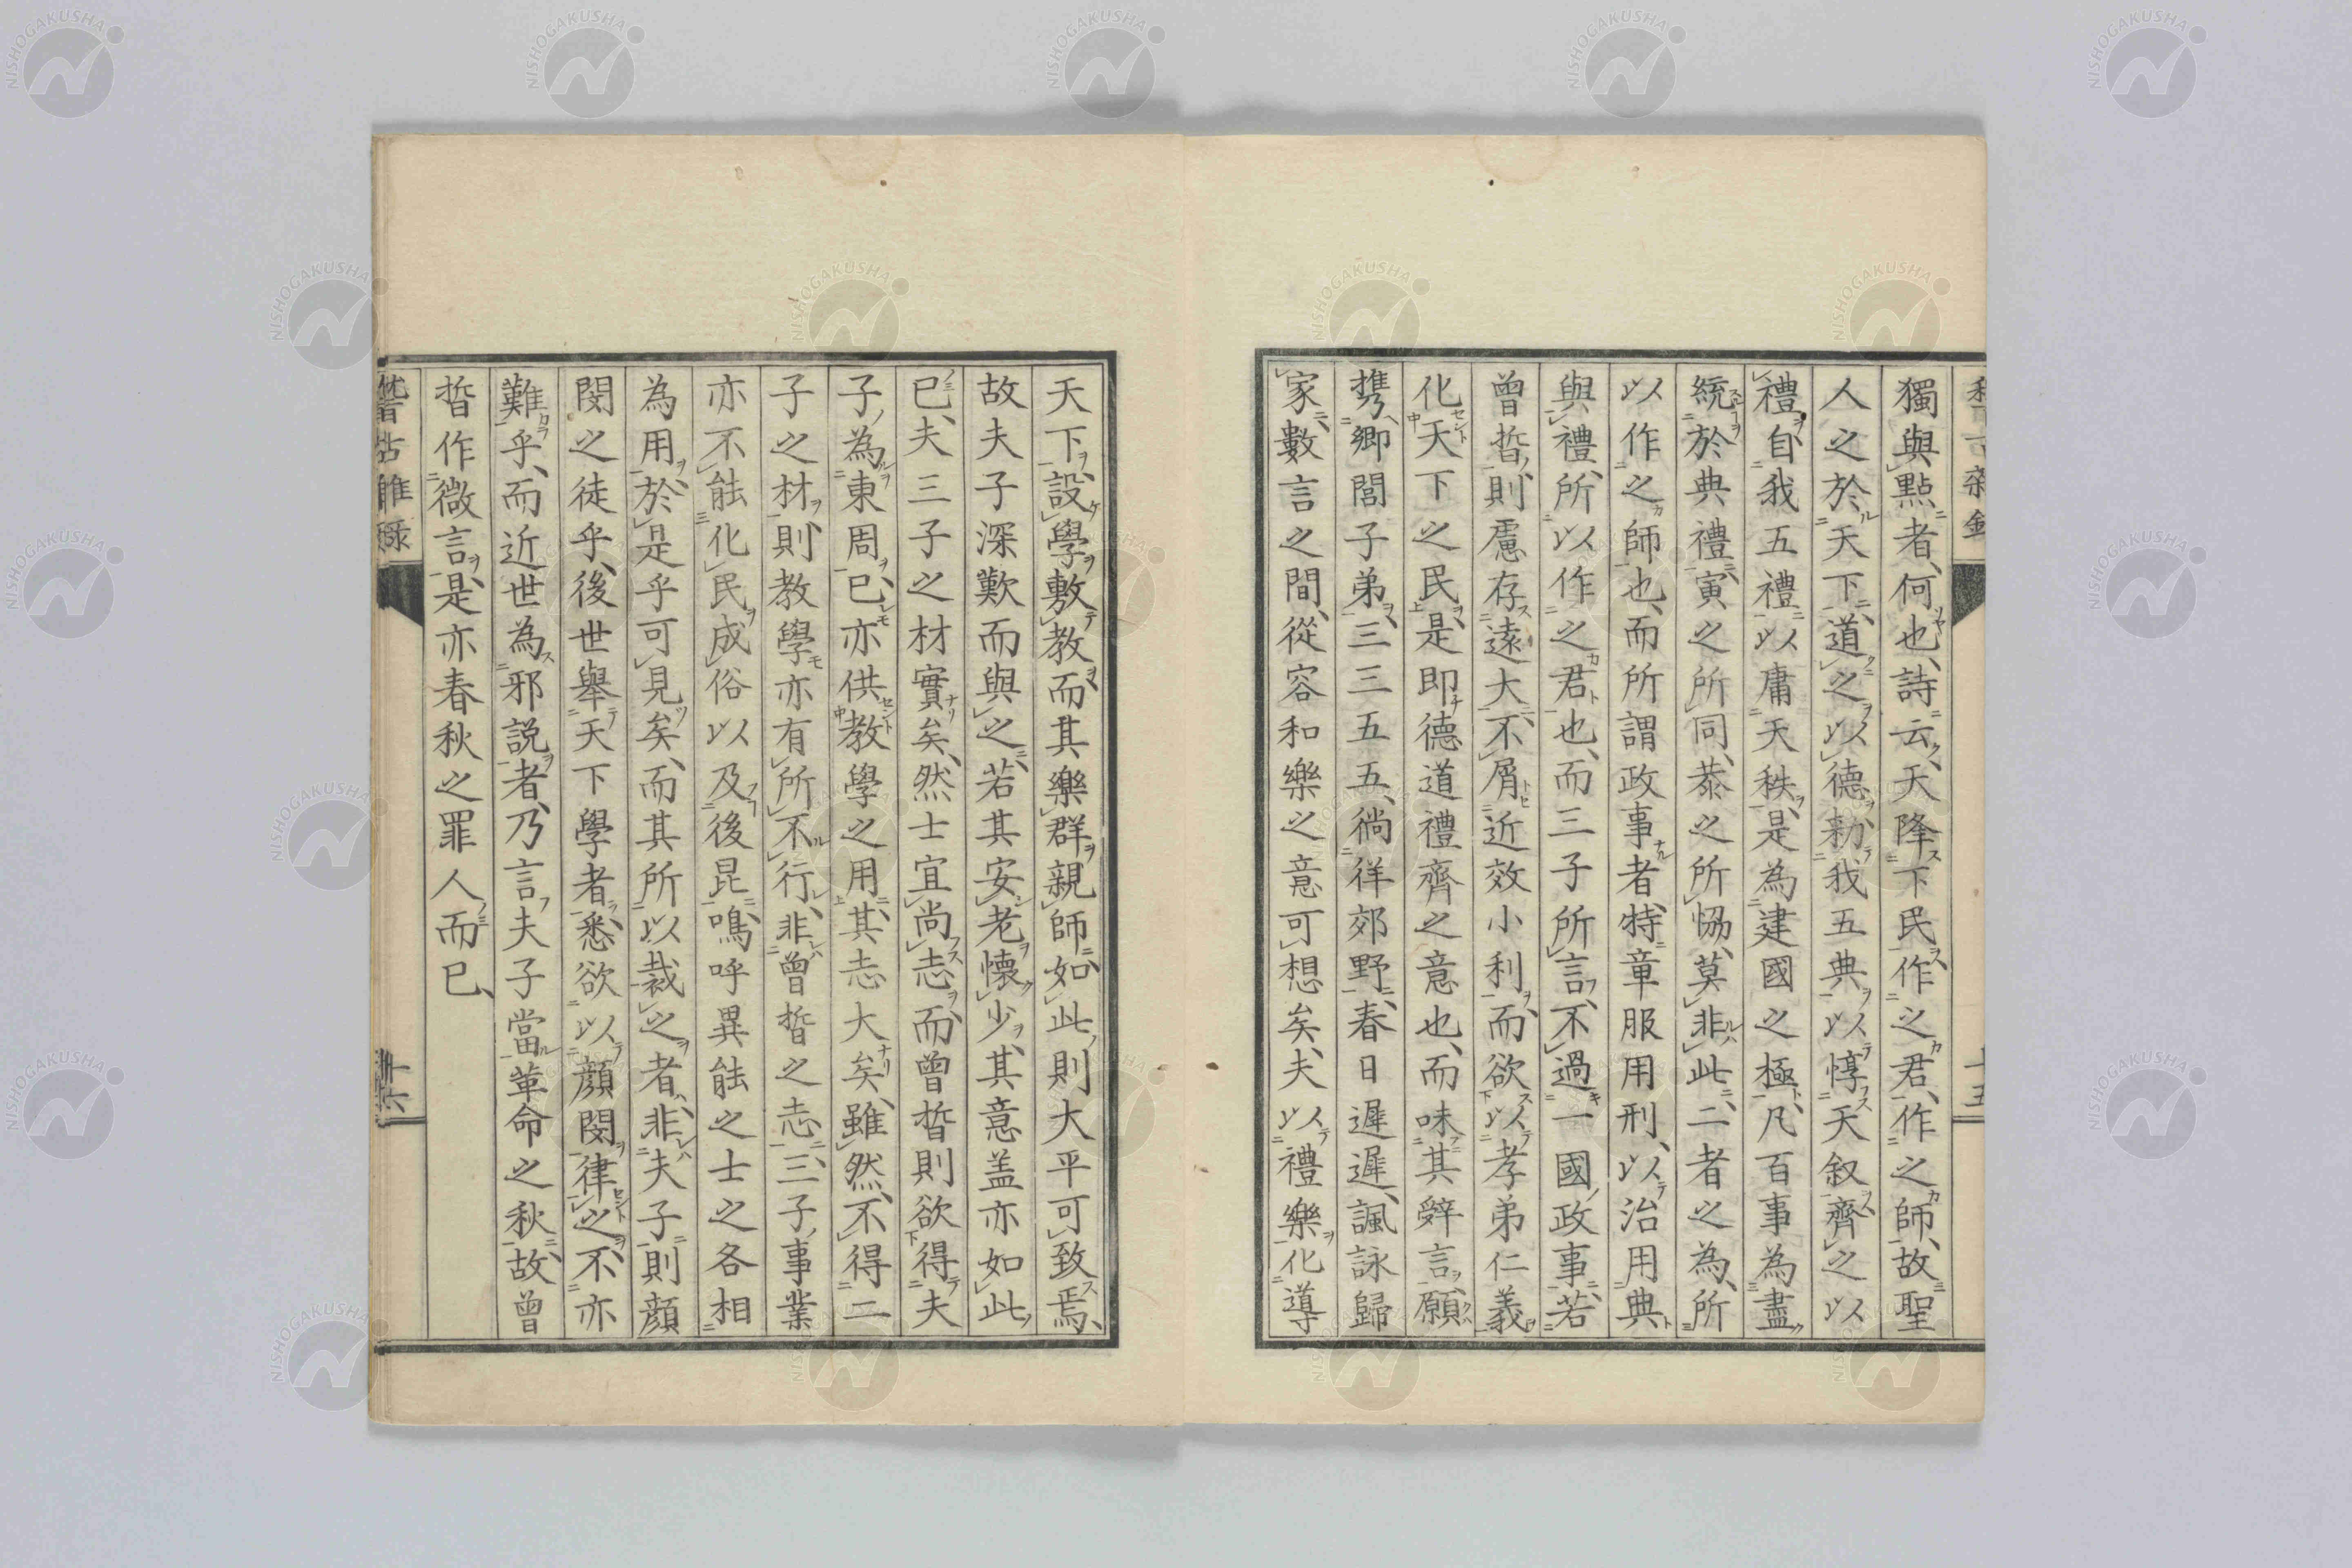 獨與點者、何也、詩云、天降下民、作之君、作之師、故聖
人之於天下、道之以德、勑我五典、以惇天叙、齊之以
禮、自我五禮、以庸天秩、是為建國之極、凡百事為、盡
統於典禮、寅之所同、恭之所協、莫非此二者之為、所
以作之師也、而所謂政事者、特章服用刑、以治用典
與禮、所以作之君也、而三子所言、不過一國政事、若
曾晳、則慮存遠大、不屑近效小利、而欲以孝弟仁義
化天下之民、是即德道禮齊之意也、而味其辤言、願
携鄉閭子弟、三三五五、徜徉郊野、春日遲遲、諷詠歸
家、數言之間、從容和樂之意可想矣、夫以禮樂化導
天下、設學敷教、而其樂群親師如此、則大平可致焉、
故夫子深歎而與之、若其安老懷少、其意盖亦如此
已、夫三子之材實矣、然士宜尚志、而曾晳則欲得夫
子為東周已、亦供教學之用、其志大矣、雖然、不得二
子之材、則教學亦有所不行、非曾晳之志、三子事業
亦不能化民成俗以及後昆、鳴呼異能之士之各相
為用、於是乎可見矣、而其所以裁之者、非夫子則顔
閔之徒乎、後世舉天下學者、悉欲以顔閔律之、不亦
難乎、而近世為邪説者、乃言夫子當革命之秋、故曾
晳作微言、是亦春秋之罪人而已、
稽古雜録
十六
NISHOGAKUSHA